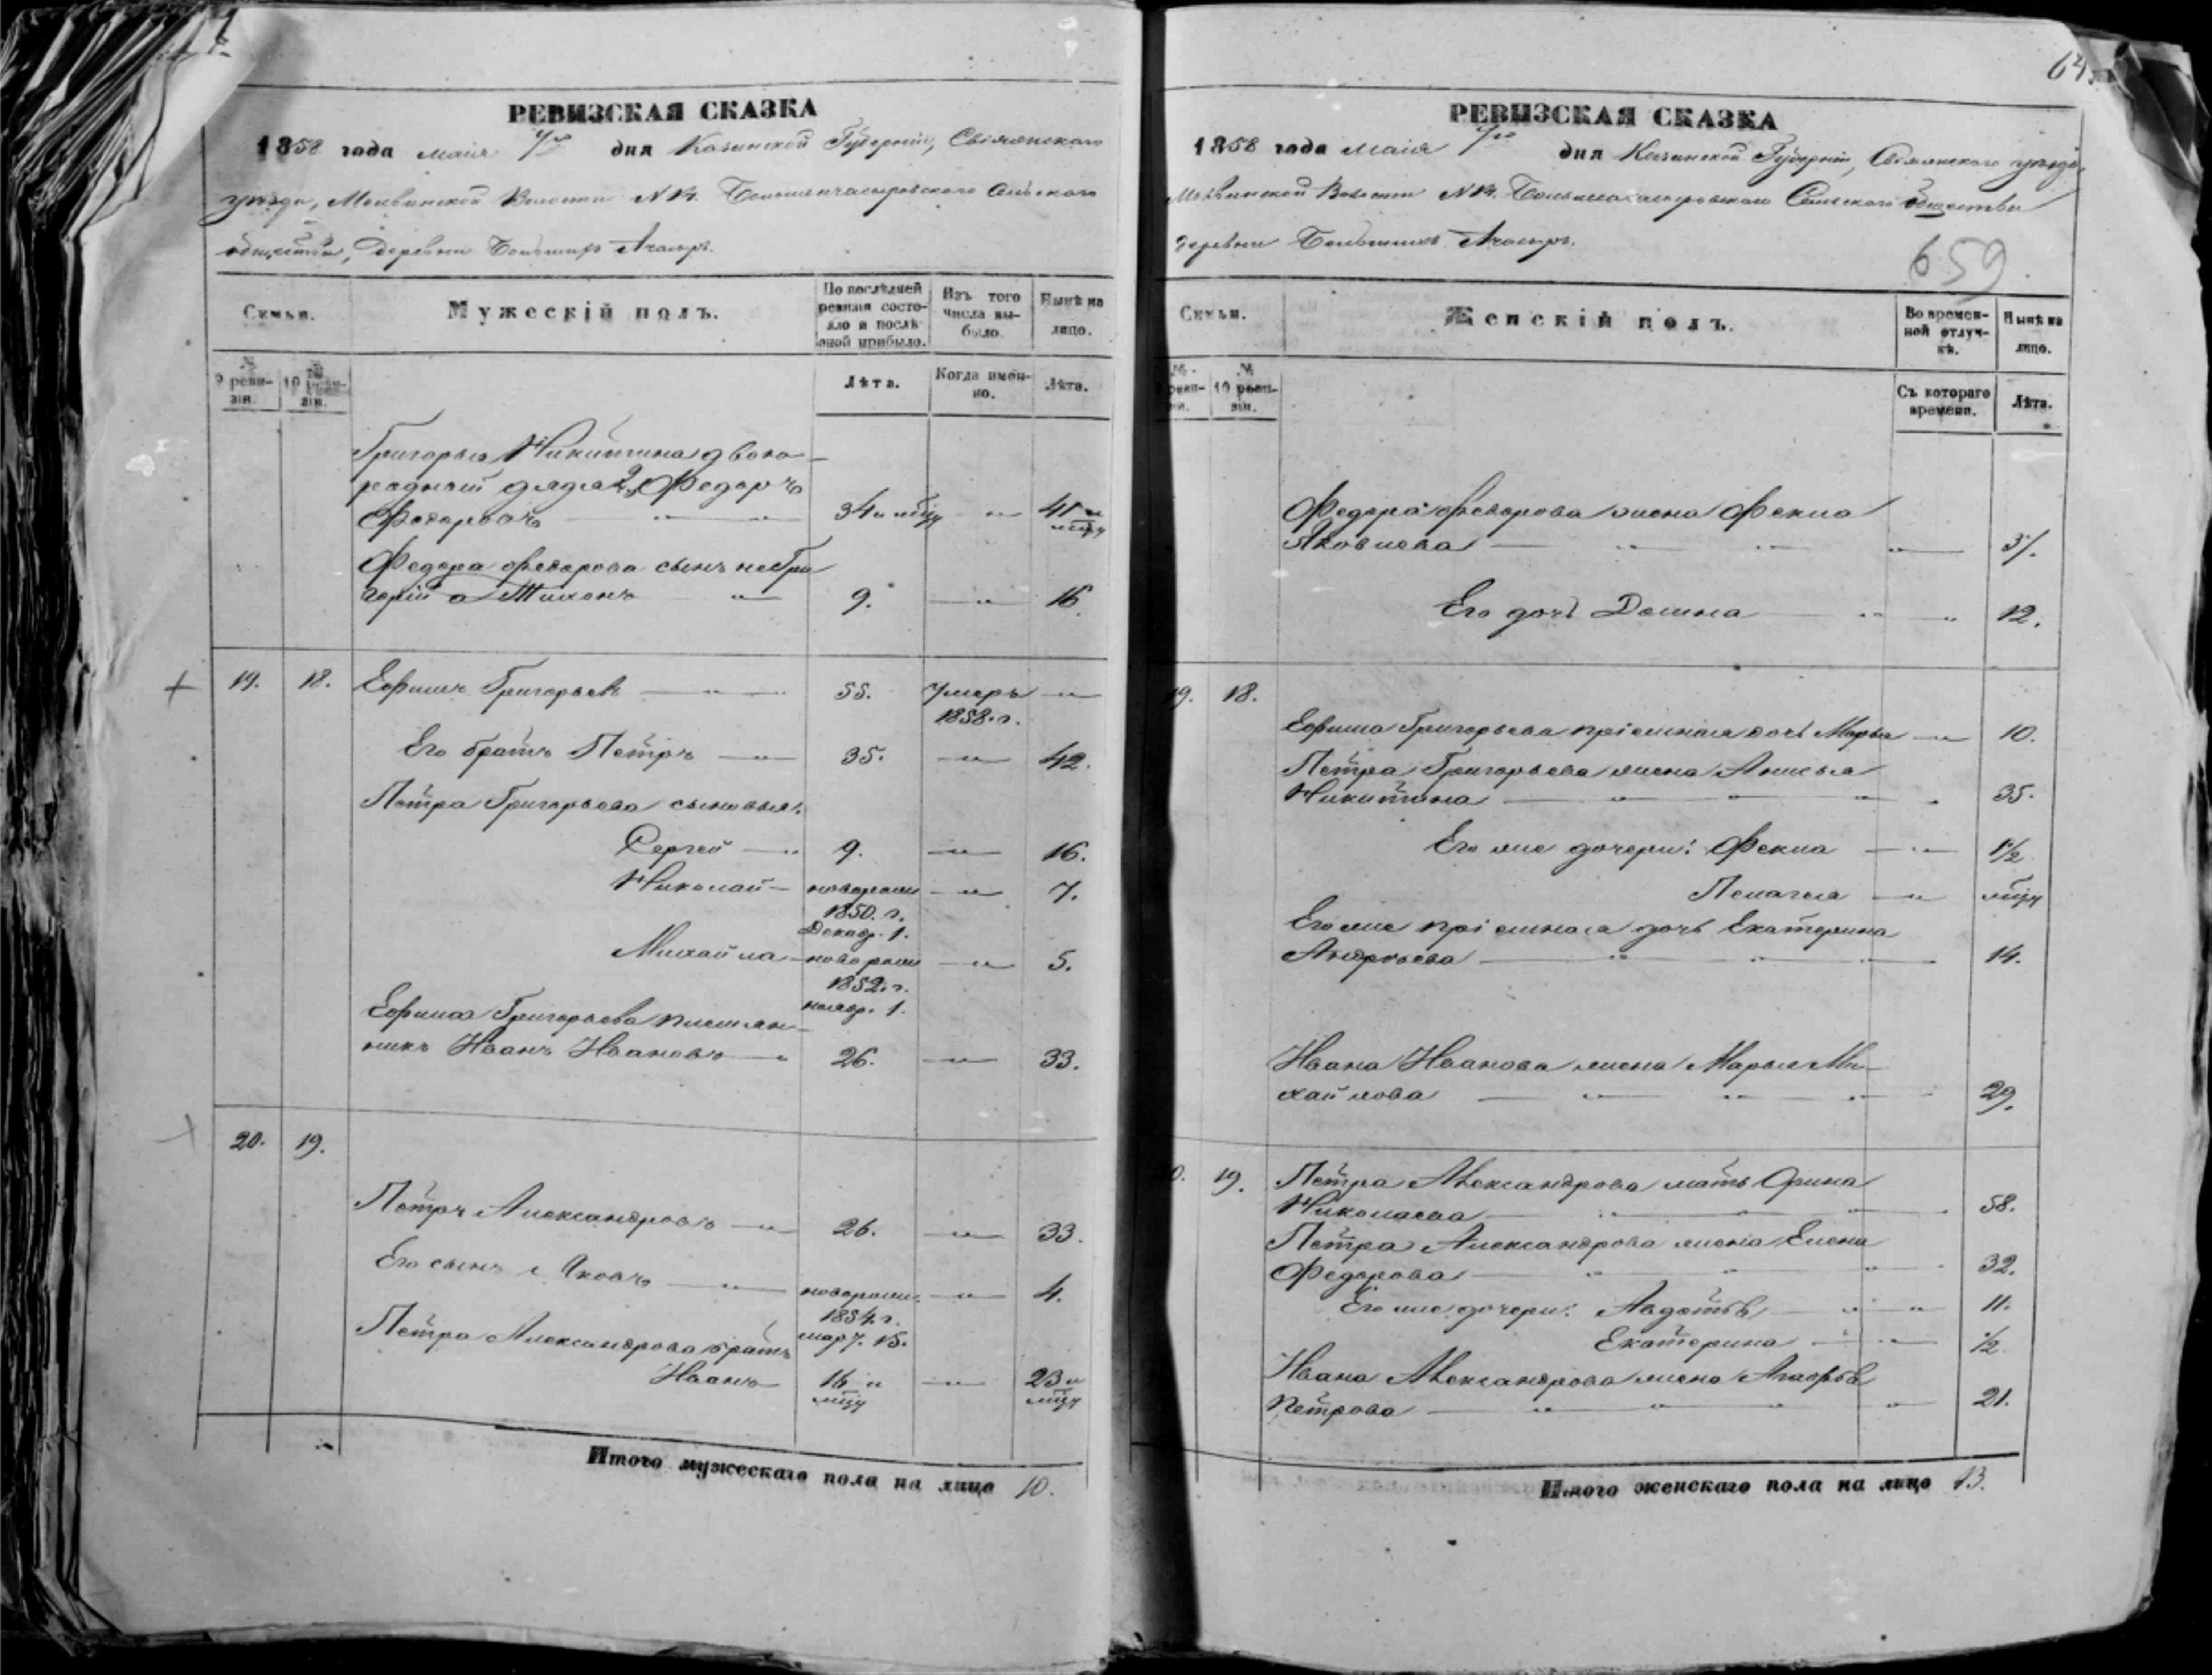 РЕВИЗСКАЯ СКАЗКА
1858 года маія 7го дня Казанской Губерніи, Свіяжскаго
уѣзда, Молвинской Волости №4. Большеачасырскаго Сельскаго
общества, деревни Большихъ Ачасыръ.
Семьи.
Мужескій полъ.
По послѣдней ревизіи состояло и послѣ оной прибыло.
Изъ того числа выбыло.
Нынѣ на лицо.
№ 9 ревизіи.
№ 10 ревизіи.
Лѣта.
Когда именно.
Лѣта.
Григорья Никитина двою-
родный дядя 2й Федоръ
Федоровъ 34 и мцу 41 и мцу
Федора Федорова сынъ не Гри
горій а Тихонъ 9. 16
19. 18. Ефимъ Григорьевъ 55. Умеръ
1858. г.
Его братъ Петръ 35. 42.
Петра Григорьева сыновья:
Сергей 9. 16.
Николай новорожд 7.
1850. г.
Декабр. 1.
Михайла новорожд 5.
1852. г.
ноябр. 1.
Ефима Григорьева племян-
никъ Иванъ Ивановъ 26. 33.
20. 19.
Петръ Александровъ 26. 33.
Его сынъ Яковъ новорожд. 4.
1854. г.
март. 15.
Петра Александрова братъ
Иванъ 16 и мцу 23 и мцу
Итого мужескаго пола на лицо 10.
РЕВИЗСКАЯ СКАЗКА
1858 года маія 7го дня Казанской Губерніи, Свіяжскаго уѣзда,
Молвинской Волости №4. Сельскаго общества
деревни Большихъ Ачасыръ.
659
Семьи.
Женскій полъ.
Во временной отлучкѣ.
Нынѣ на лицо.
№ ревизіи.
№ 10 ревизіи.
Съ котораго времени.
Лѣта.
Федора Федорова жена Фекла
Яковлева
Его дочь Домна 12.
19. 18.
Ефима Григорьева пріемная дочь Марья 10.
Петра Григорьева жена Анисья
Никитина 35.
Его же дочери: Фекла 1½
Пелагея мцу
Его же пріемная дочь Екатерина
Андреева 14.
Ивана Иванова жена Марья Ми-
хайлова 29.
0. 19. Петра Александрова мать Орина
Николаева 58.
Петра Александрова жена Елена
Федорова 32.
Его же дочери: Авдотья 11.
Екатерина ½
Ивана Александрова жена Агафья
Петрова 21.
Итого женскаго пола на лицо 13.